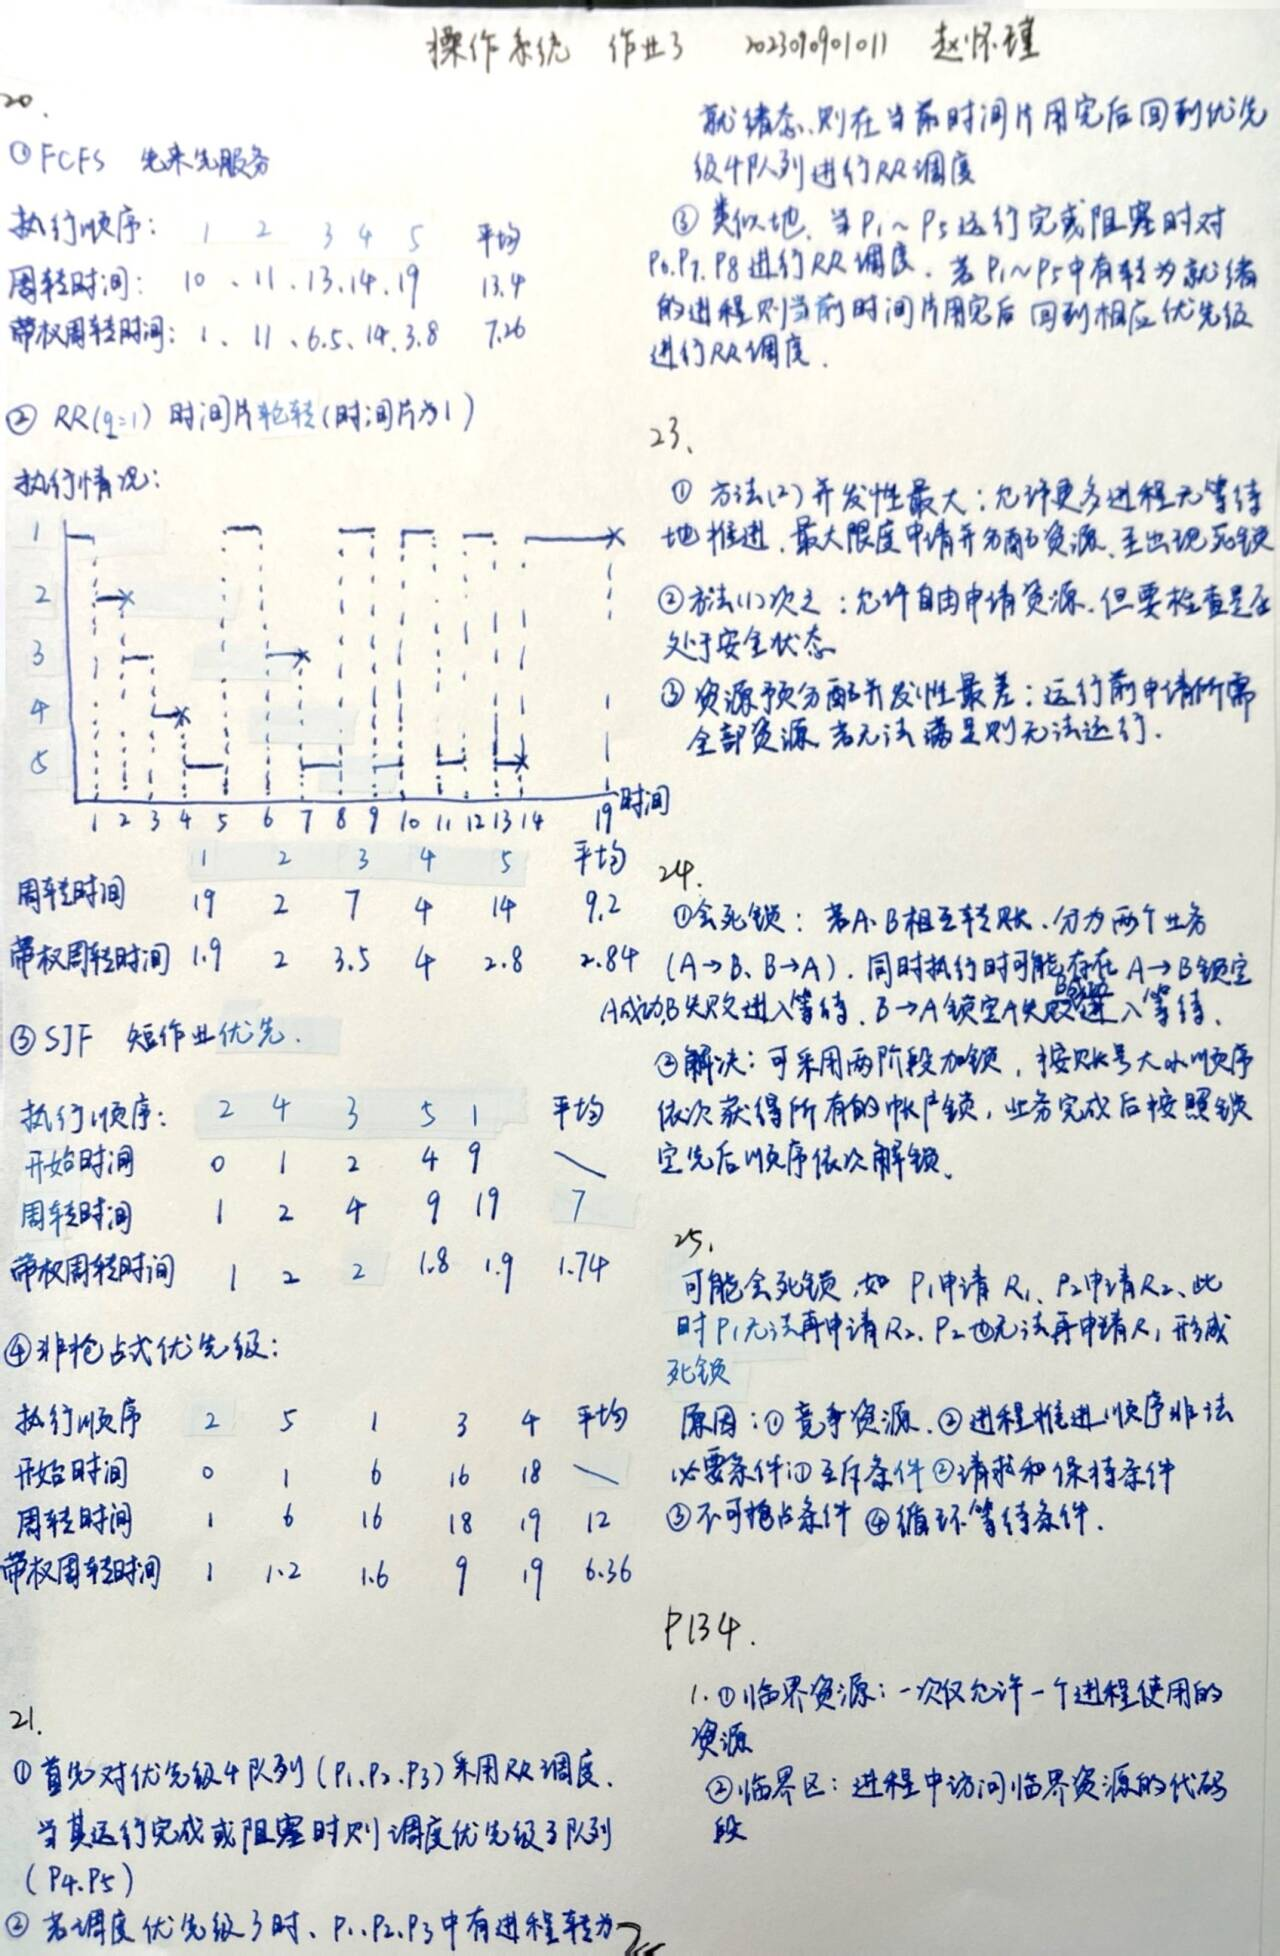 操作系统 作业3 2023090901011 赵怀瑾
20.
① FCFS 先来先服务
执行顺序: 1 2 3 4 5 平均
周转时间: 10、11、13、14、19 13.4
带权周转时间: 1、11、6.5、14、3.8 7.26
② RR(q=1) 时间片轮转(时间片为1)
执行情况:
1
2
3
4
5
1 2 3 4 5 6 7 8 9 10 11 12 13 14 19 时间
1 2 3 4 5 平均
周转时间 19 2 7 4 14 9.2
带权周转时间 1.9 2 3.5 4 2.8 2.84
③ SJF 短作业优先.
执行顺序: 2 4 3 5 1 平均
开始时间 0 1 2 4 9 \
周转时间 1 2 4 9 19 7
带权周转时间 1 2 2 1.8 1.9 1.74
④非抢占式优先级:
执行顺序 2 5 1 3 4 平均
开始时间 0 1 6 16 18 \
周转时间 1 6 16 18 19 12
带权周转时间 1 1.2 1.6 9 19 6.36
21.
① 首先对优先级4队列(P1、P2、P3)采用RR调度.
当其运行完成或阻塞时则调度优先级3队列
(P4.P5)
② 若调度优先级3时、P1、P2、P3中有进程转为
就绪态、则在当前时间片用完后回到优先
级4队列进行RR调度
③ 类似地、当P1~P5运行完或阻塞时对
P6.P7.P8进行RR调度.若P1~P5中有转为就绪
的进程则当前时间片用完后回到相应优先级
进行RR调度.
23、
① 方法(2)并发性最大:允许更多进程无等待
地推进.最大限度申请并分配资源、至出现死锁
②方法(1)次之:允许自由申请资源.但要检查是否
处于安全状态
③ 资源预分配并发性最差:运行前申请所需
全部资源 若无法满足则无法运行.
24.
①会死锁:若A、B相互转账.分为两个业务
(A→B、B→A).同时执行时可能存在A→B锁定
A成功B失败进入等待.B→A锁定B成功A失败进入等待.
②解决:可采用两阶段加锁,按账号大小顺序
依次获得所有的帐户锁,业务完成后按照锁
定先后顺序依次解锁.
25.
可能会死锁,如P1申请R1、P2申请R2、此
时P1无法再申请R2、P2也无法再申请R1形成
死锁
原因:①竞争资源.②进程推进顺序非法
必要条件①互斥条件②请求和保持条件
③不可抢占条件④循环等待条件.
P134.
1.①临界资源:一次仅允许一个进程使用的
资源
②临界区:进程中访问临界资源的代码
段